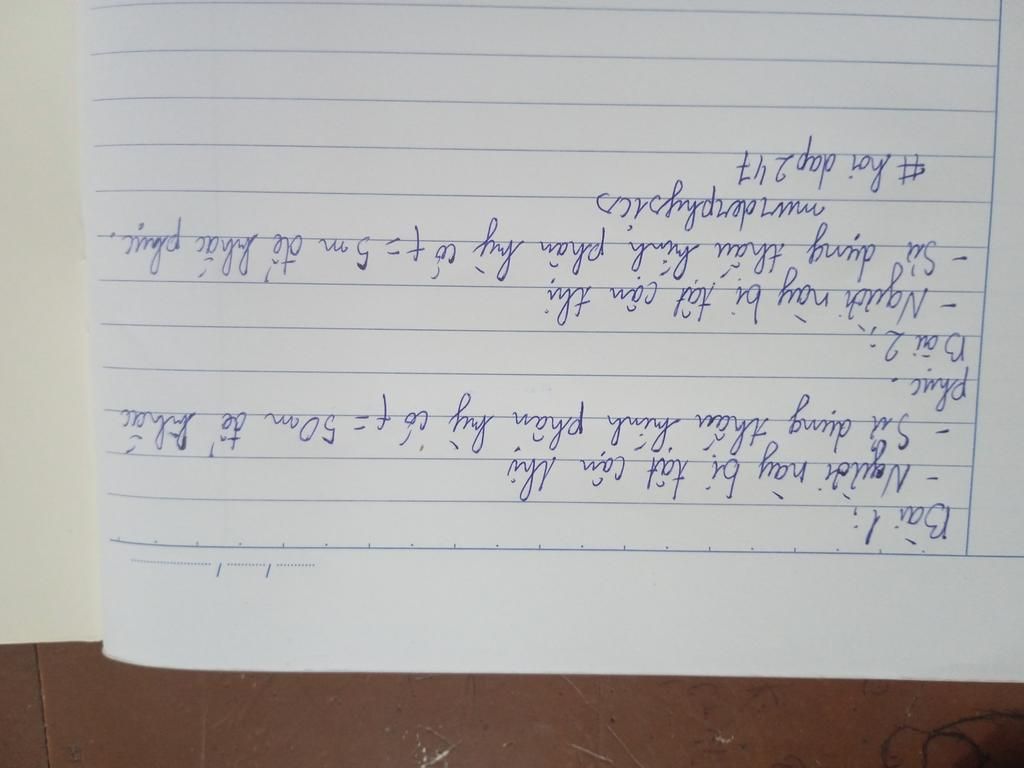 Bài 1:
- Người này bị tật cận thị
- Sử dụng thấu kính phân kỳ có f = 50cm để khắc
phục.
Bài 2:
- Người này bị tật cận thị
- Sử dụng thấu kính phân kỳ có f = 5m để khắc phục.
murderphysics
# hoi dap 247